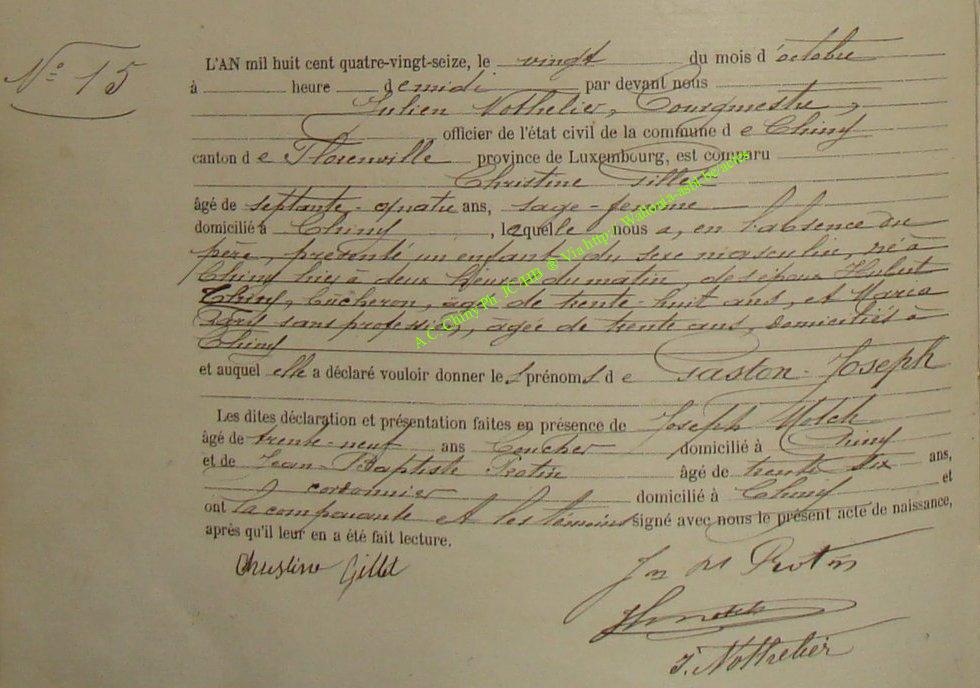 N° 15
L'AN mil huit cent quatre-vingt-seize, le vingt du mois d'octobre
à heure demidi par devant nous
Julien Nothelier, Bourgmestre,
officier de l'état civil de la commune de Chiny
canton de Florenville province de Luxembourg, est comparu
Christine Gillet
âgé de septante-quatre ans, sage-femme
domicilié à Chiny, laquelle nous a, en l'absence du
père, présenté un enfant du sexe masculin, né à
Chiny hier à deux heures du matin, des époux Hubert
Chiny, bûcheron, âgé de trente-huit ans, et Maria
sans profession, âgée de trente ans, domiciliés à
Chiny
et auquel elle a déclaré vouloir donner les prénoms de Gaston-Joseph
Les dites déclaration et présentation faites en présence de Joseph
âgé de trente-neuf ans domicilié à Chiny
et de Jean-Baptiste Protin âgé de trente six ans,
cordonnier domicilié à Chiny et
ont la comparante et les témoins signé avec nous le présent acte de naissance,
après qu'il leur en a été fait lecture.
Christine Gillet
Protin
J. Nothelier
A.C. Chiny Ph JC HB ® Via http://Wallonia-asbl.be/